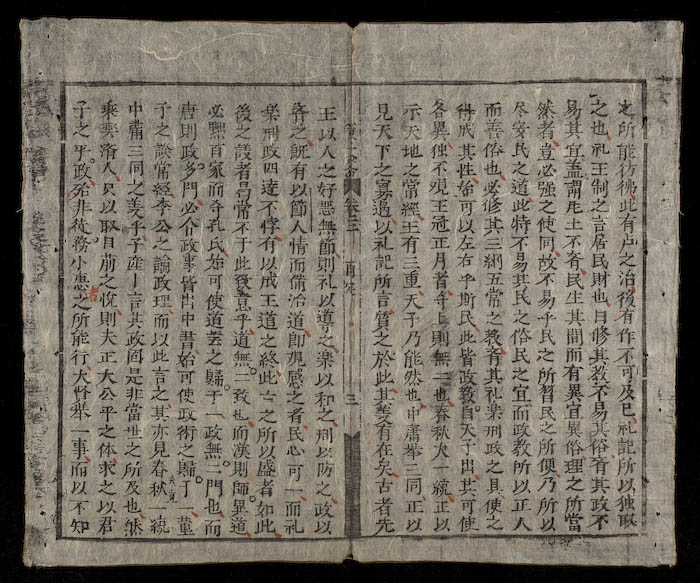 之所能彷彿此有虞之治後有作不可及已礼記所以独取
之也礼王制之言居民財也曰修其教不易其俗齊其政不
易其宜盖謂凡土不齊民生其間而有異宜異俗理之所當
然者豈必强之使同故不易乎民之所習民之所便乃所以
尽安民之道此特不易其民之俗民之宜而政教所以正人
而善俗也必修其三綱五常之教齊其礼楽刑政之具使之
得成其性始可以左右乎斯民此皆政教自天子出其可使
各異独不观王冠正月者乎上則無二也春秋大一統正以
示天地之常經王有三重天子乃能然也中庸举三同正以
見天下之寡過以礼記所言質之於此其義有在矣古者先
卷之三
三
王以人之好悪無節則礼以道之楽以和之刑以防之政以
齊之既有以節人情而脩治道即观感之者民心可一而礼
楽刑政四達不悖有以成王道之終此古之所以盛者如此
後之設者曷常不于此致意乎道無二致也而漢則師異道
必黙百家而奇孔氏始可使道芸之歸于一政無二門也而
唐則政多門必令政事皆出中書始可使政術之歸于董
子之説常經李公之論政理而以此言之其亦見春秋一統
中庸三同之義乎子産一言其政固是非當世之所及也然
乘輿濟人只以取目前之悦則夫正大公平之体求之以君
子之平政殆非徒務小惠者之所能行大督举一事而以不知